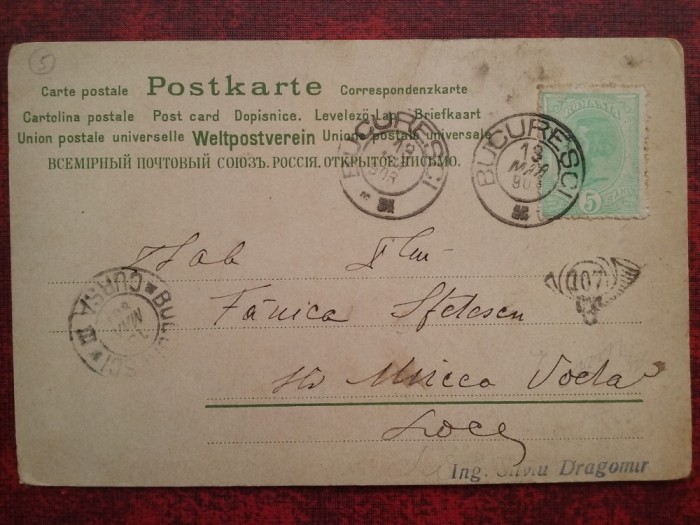 5
Carte postale Postkarte Correspondenzkarte
Cartolina postale Post card Dopisnice. Levelező Lap Briefkaart
Union postale universelle Weltpostverein Union postale universale
ВСЕМІРНЫЙ ПОЧТОВЫЙ СОЮЗЪ. РОССІЯ. ОТКРЫТОЕ ПИСЬМО.
BUCURESCI
903
BUCURESCI
19
MAR
903
ROMANIA
5
BANI
107
BUCURESCI
CURSA III
MAR
Fănica Sfetescu
Mircea Voda
Loco
Ing. Silviu Dragomir